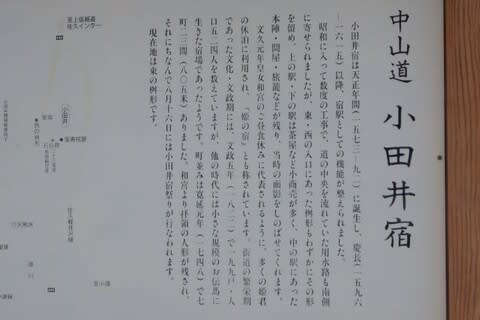 中山道 小田井宿
小田井宿は天正年間(一五七三―九二)に誕生し、慶長(一五九六
―一六一五)以降、宿駅としての機能が整えられました。
昭和に入って数度の工事で、道の中央を流れていた用水路も南側
に寄せられましたが、東・西の入口にあった桝形もわずかにその形
を留め、上の駅・下の駅は茶屋など小商売が多く、中の駅にあった
本陣・問屋・旅籠などが残り、当時の面影をしのばせてくれます。
文久元年皇女和宮のご昼食休みに代表されるように、多くの姫君
の休泊に利用され、「姫の宿」とも称されています。街道の繁栄期
であった文化・文政期には、文政五年(一八二二)で一九九戸・人
口五二四人を数えていますが、他の時代には小さな規模のお伝馬に
生きた宿場であったようです。町並みは寛延元年(一七四八)で七
町二三間(八〇五米)ありました。和宮より拝領の人形が残され、
それにちなんで八月十六日には小田井宿祭りが行なわれます。
現在地は東の桝形です。
至上信越道
佐久インター
小田井
宝珠院
西の桝形